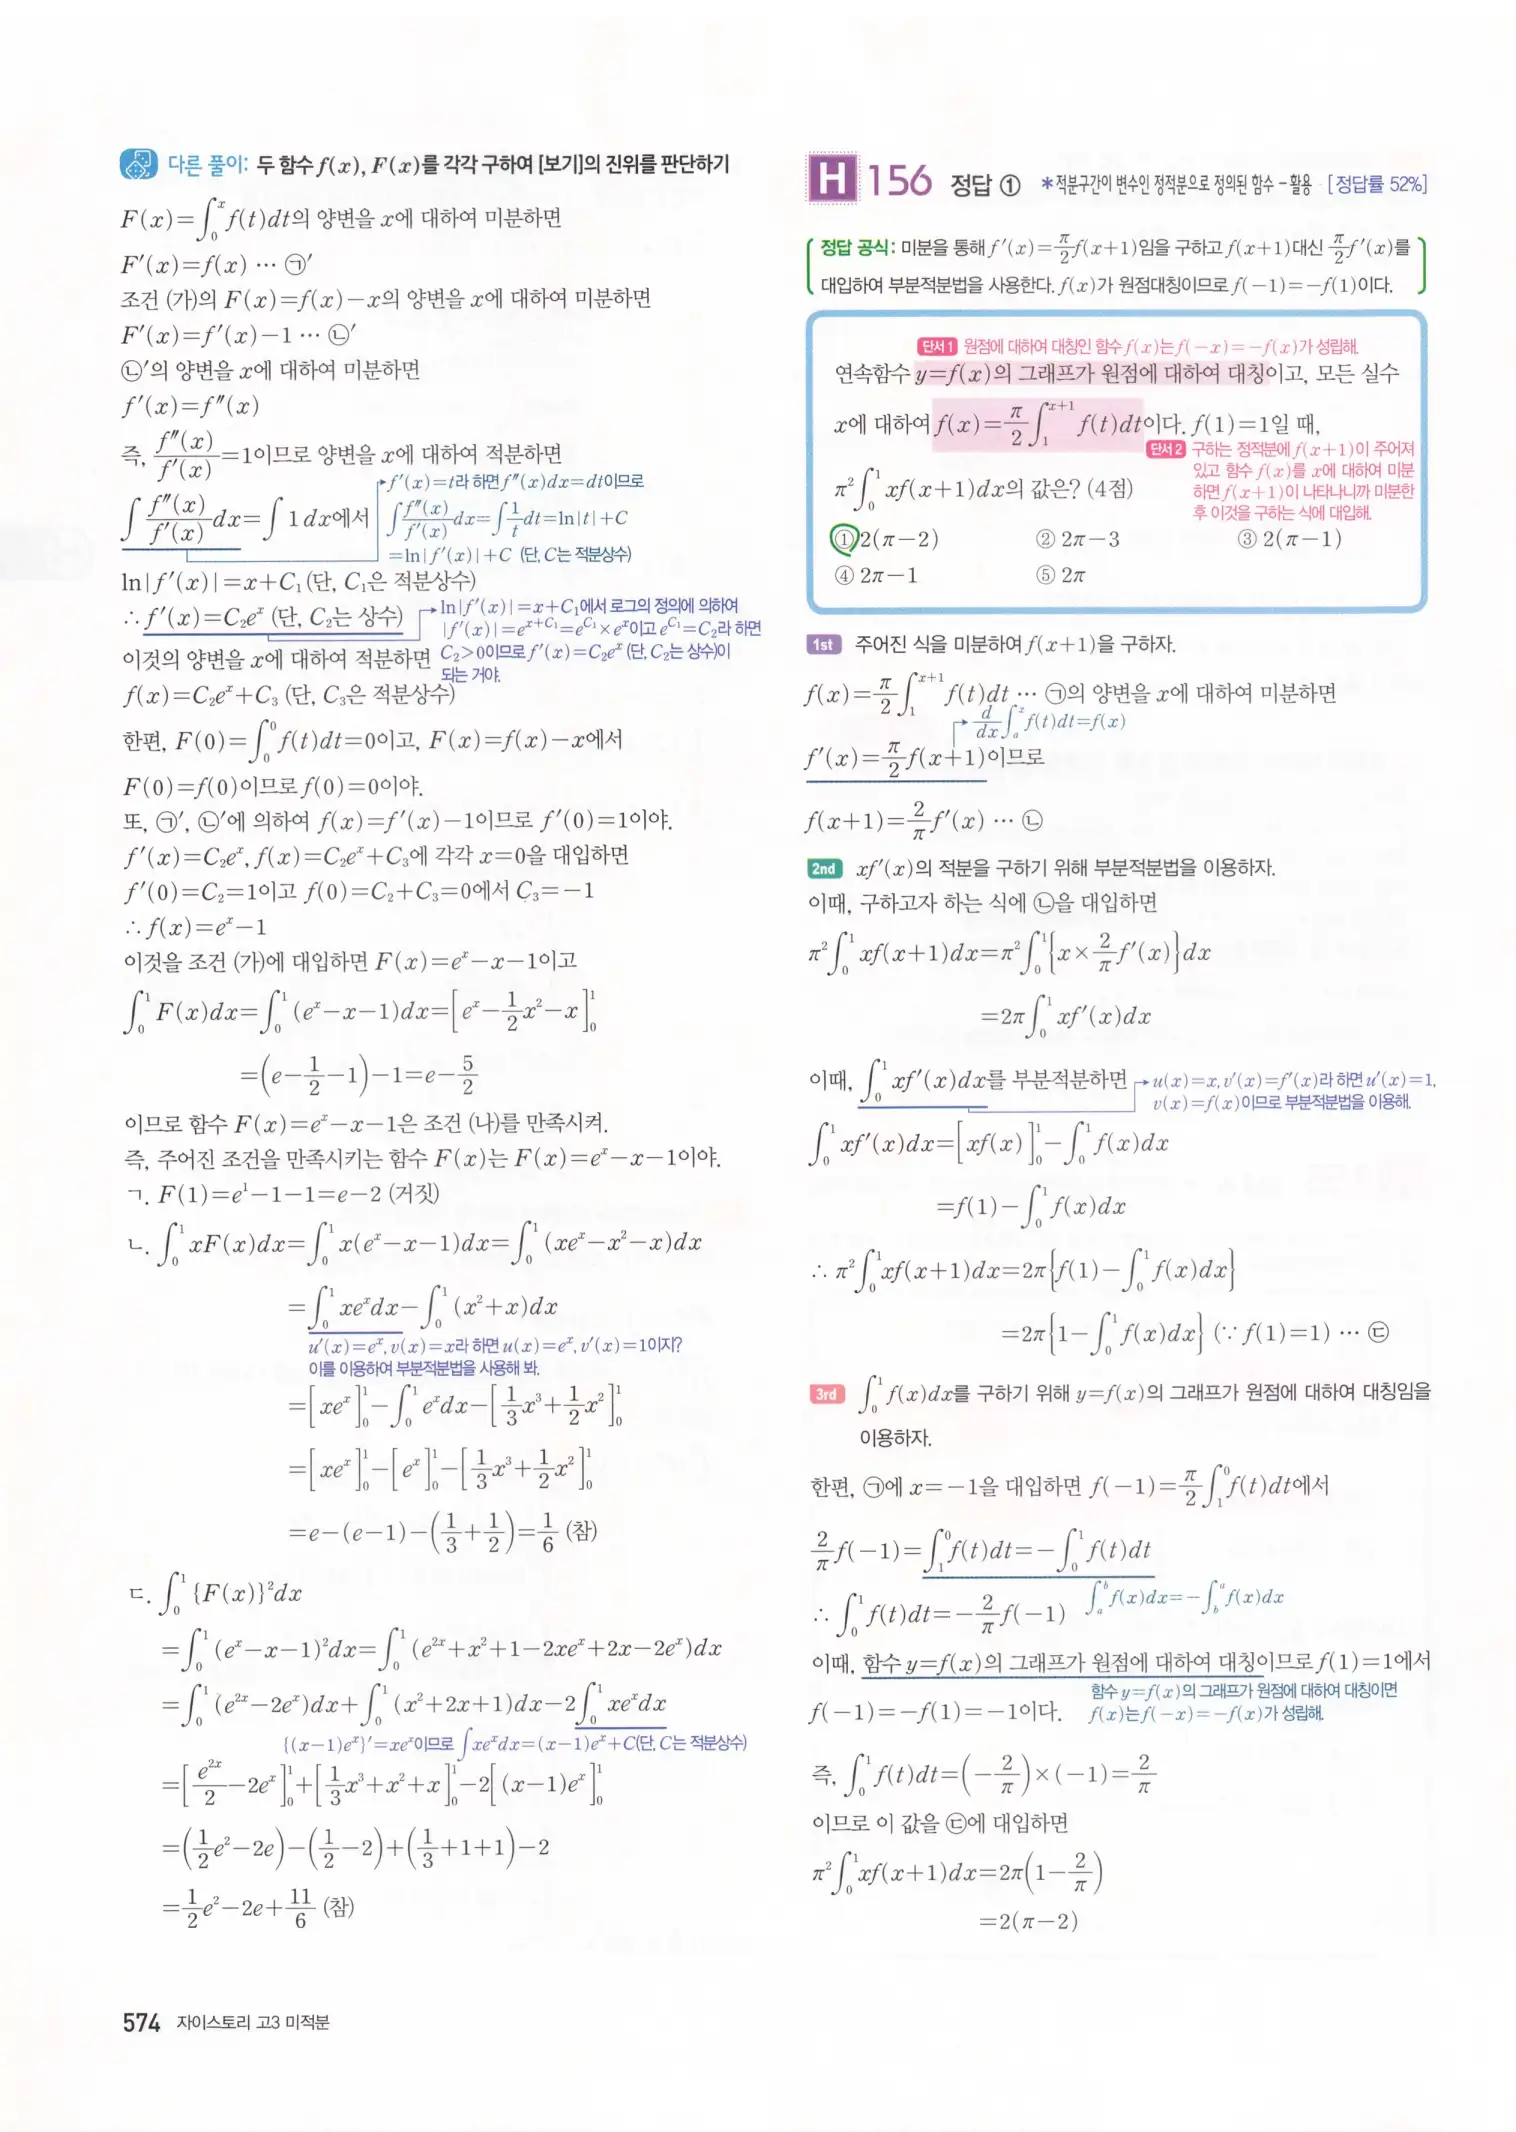 다른 풀이: 두 함수 f(x), F(x)를 각각 구하여 [보기]의 진위를 판단하기
F(x)=∫₀ˣ f(t)dt의 양변을 x에 대하여 미분하면
F′(x)=f(x) ⋯ ㉠′
조건 (가)의 F(x)=f(x)−x의 양변을 x에 대하여 미분하면
F′(x)=f′(x)−1 ⋯ ㉡′
㉡′의 양변을 x에 대하여 미분하면
f′(x)=f″(x)
즉, f″(x)/f′(x)=1이므로 양변을 x에 대하여 적분하면
∫ f″(x)/f′(x) dx=∫ 1dx에서
f′(x)=t라 하면 f″(x)dx=dt이므로
∫ f″(x)/f′(x) dx=∫ 1/t dt=ln|t|+C
=ln|f′(x)|+C (단, C는 적분상수)
ln|f′(x)|=x+C₁(단, C₁은 적분상수)
∴ f′(x)=C₂eˣ (단, C₂는 상수)
ln|f′(x)|=x+C₁에서 로그의 정의에 의하여
|f′(x)|=e^(x+C₁)=e^(C₁)×eˣ이고 e^(C₁)=C₂라 하면
C₂>0이므로 f′(x)=C₂eˣ (단, C₂는 상수)이
되는 거야.
이것의 양변을 x에 대하여 적분하면
f(x)=C₂eˣ+C₃ (단, C₃은 적분상수)
한편, F(0)=∫₀⁰ f(t)dt=0이고, F(x)=f(x)−x에서
F(0)=f(0)이므로 f(0)=0이야.
또, ㉠′, ㉡′에 의하여 f(x)=f′(x)−1이므로 f′(0)=1이야.
f′(x)=C₂eˣ, f(x)=C₂eˣ+C₃에 각각 x=0을 대입하면
f′(0)=C₂=1이고 f(0)=C₂+C₃=0에서 C₃=−1
∴ f(x)=eˣ−1
이것을 조건 (가)에 대입하면 F(x)=eˣ−x−1이고
∫₀¹ F(x)dx=∫₀¹ (eˣ−x−1)dx=[eˣ−1/2x²−x]₀¹
=(e−1/2−1)−1=e−5/2
이므로 함수 F(x)=eˣ−x−1은 조건 (나)를 만족시켜.
즉, 주어진 조건을 만족시키는 함수 F(x)는 F(x)=eˣ−x−1이야.
ㄱ. F(1)=e¹−1−1=e−2 (거짓)
ㄴ. ∫₀¹ xF(x)dx=∫₀¹ x(eˣ−x−1)dx=∫₀¹ (xeˣ−x²−x)dx
=∫₀¹ xeˣdx−∫₀¹ (x²+x)dx
u′(x)=eˣ, v(x)=x라 하면 u(x)=eˣ, v′(x)=1이지?
이를 이용하여 부분적분법을 사용해 봐.
=[xeˣ]₀¹−∫₀¹ eˣdx−[1/3x³+1/2x²]₀¹
=[xeˣ]₀¹−[eˣ]₀¹−[1/3x³+1/2x²]₀¹
=e−(e−1)−(1/3+1/2)=1/6 (참)
ㄷ. ∫₀¹ {F(x)}²dx
=∫₀¹ (eˣ−x−1)²dx=∫₀¹ (e²ˣ+x²+1−2xeˣ+2x−2eˣ)dx
=∫₀¹ (e²ˣ−2eˣ)dx+∫₀¹ (x²+2x+1)dx−2∫₀¹ xeˣdx
{(x−1)eˣ}′=xeˣ이므로 ∫xeˣdx=(x−1)eˣ+C(단, C는 적분상수)
=[e²ˣ/2−2eˣ]₀¹+[1/3x³+x²+x]₀¹−2[(x−1)eˣ]₀¹
=(1/2e²−2e)−(1/2−2)+(1/3+1+1)−2
=1/2e²−2e+11/6 (참)
574 자이스토리 고3 미적분
H 156 정답 ① *적분구간이 변수인 정적분으로 정의된 함수 - 활용 [정답률 52%]
정답 공식: 미분을 통해 f′(x)=π/2 f(x+1)임을 구하고 f(x+1)대신 π/2 f′(x)를
대입하여 부분적분법을 사용한다. f(x)가 원점대칭이므로 f(−1)=−f(1)이다.
단서1 원점에 대하여 대칭인 함수 f(x)는 f(−x)=−f(x)가 성립해.
연속함수 y=f(x)의 그래프가 원점에 대하여 대칭이고, 모든 실수
x에 대하여 f(x)=π/2 ∫₁ˣ⁺¹ f(t)dt이다. f(1)=1일 때,
단서2 구하는 정적분에 f(x+1)이 주어져
있고 함수 f(x)를 x에 대하여 미분
하면 f(x+1)이 나타나니까 미분한
후 이것을 구하는 식에 대입해.
π²∫₀¹ xf(x+1)dx의 값은? (4점)
① 2(π−2) ② 2π−3 ③ 2(π−1)
④ 2π−1 ⑤ 2π
1st 주어진 식을 미분하여 f(x+1)을 구하자.
f(x)=π/2 ∫₁ˣ⁺¹ f(t)dt ⋯ ㉠의 양변을 x에 대하여 미분하면
d/dx ∫ₐˣ f(t)dt=f(x)
f′(x)=π/2 f(x+1)이므로
f(x+1)=2/π f′(x) ⋯ ㉡
2nd xf′(x)의 적분을 구하기 위해 부분적분법을 이용하자.
이때, 구하고자 하는 식에 ㉡을 대입하면
π²∫₀¹ xf(x+1)dx=π²∫₀¹ {x×2/π f′(x)}dx
=2π∫₀¹ xf′(x)dx
이때, ∫₀¹ xf′(x)dx를 부분적분하면
u(x)=x, v′(x)=f′(x)라 하면 u′(x)=1,
v(x)=f(x)이므로 부분적분법을 이용해.
∫₀¹ xf′(x)dx=[xf(x)]₀¹−∫₀¹ f(x)dx
=f(1)−∫₀¹ f(x)dx
∴ π²∫₀¹ xf(x+1)dx=2π{f(1)−∫₀¹ f(x)dx}
=2π{1−∫₀¹ f(x)dx} (∵ f(1)=1) ⋯ ㉢
3rd ∫₀¹ f(x)dx를 구하기 위해 y=f(x)의 그래프가 원점에 대하여 대칭임을
이용하자.
한편, ㉠에 x=−1을 대입하면 f(−1)=π/2 ∫₁⁰ f(t)dt에서
2/π f(−1)=∫₁⁰ f(t)dt=−∫₀¹ f(t)dt
∫ₐᵇ f(x)dx=−∫_bᵃ f(x)dx
∴ ∫₀¹ f(t)dt=−2/π f(−1)
이때, 함수 y=f(x)의 그래프가 원점에 대하여 대칭이므로 f(1)=1에서
함수 y=f(x)의 그래프가 원점에 대하여 대칭이면
f(x)는 f(−x)=−f(x)가 성립해.
f(−1)=−f(1)=−1이다.
즉, ∫₀¹ f(t)dt=(−2/π)×(−1)=2/π
이므로 이 값을 ㉢에 대입하면
π²∫₀¹ xf(x+1)dx=2π(1−2/π)
=2(π−2)